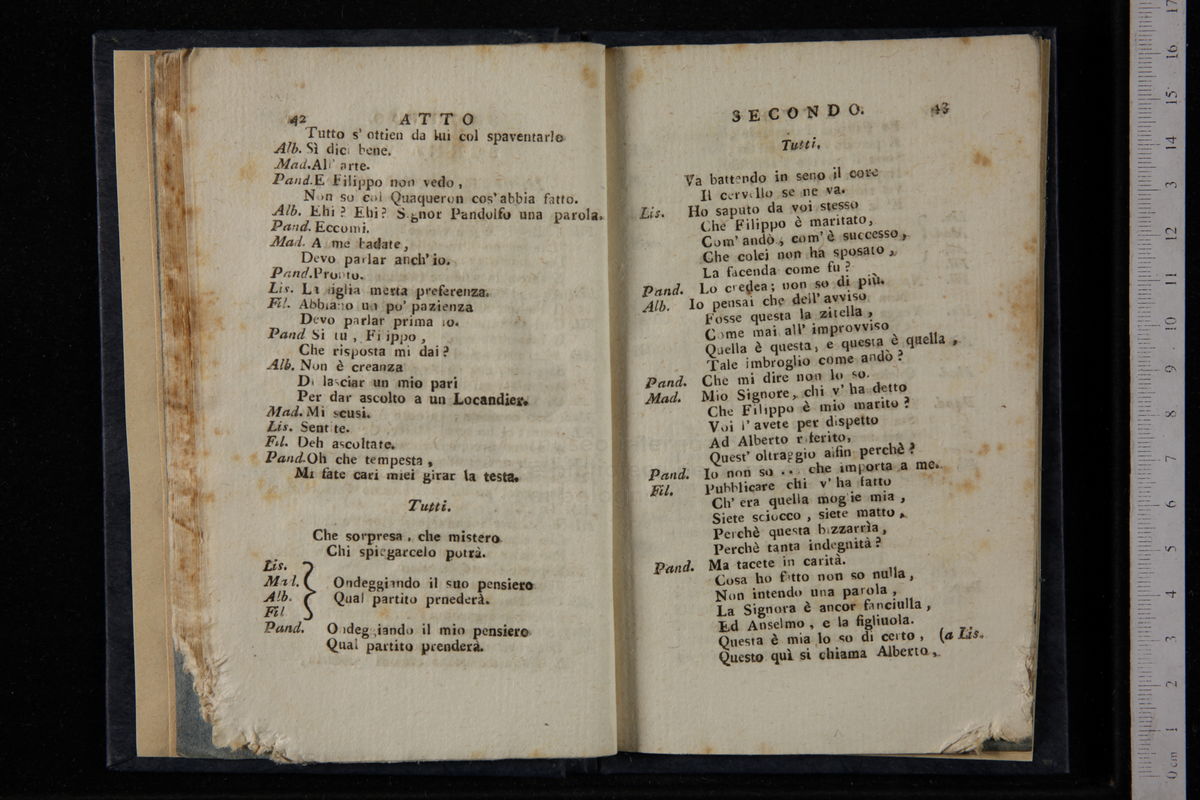 42 ATTO
Tutto s' ottien da lui col spaventarlo
Alb. Sì dici bene.
Mad. All' arte.
Pand. E Filippo non vedo,
Non so col Quaqueron cos' abbia fatto.
Alb. Ehi? Ehi? Signor Pandolfo una parola.
Pand. Eccomi.
Mad. A me badate,
Devo parlar anch' io.
Pand. Pronto.
Lis. La figlia merta preferenza.
Fil. Abbiano un po' pazienza
Devo parlar prima io.
Pand Si tu, Filippo,
Che risposta mi dai?
Alb. Non è creanza
Di lasciar un mio pari
Per dar ascolto a un Locandier.
Mad. Mi scusi.
Lis. Sentite.
Fil. Deh ascoltate.
Pand. Oh che tempesta,
Mi fate cari miei girar la testa.
Tutti.
Che sorpresa, che mistero
Chi spiegarcelo potrà.
Lis.
Mad.
Alb.
Fil
Ondeggiando il suo pensiero
Qual partito prnederà.
Pand. Ondeggiando il mio pensiero
Qual partito prenderà.
SECONDO. 43
Tutti.
Va battendo in seno il core
Il cervello se ne va.
Lis. Ho saputo da voi stesso
Che Filippo è maritato,
Com' andò, com' è successo,
Che colei non ha sposato,
La facenda come fu?
Pand. Lo credea; non so di più.
Alb. Io pensai che dell' avviso
Fosse questa la zitella,
Come mai all' improvviso
Quella è questa, e questa è quella,
Tale imbroglio come andò?
Pand. Che mi dire non lo so.
Mad. Mio Signore, chi v' ha detto
Che Filippo è mio marito?
Voi l' avete per dispetto
Ad Alberto riferito,
Quest' oltraggio alfin perchè?
Pand. Io non so ... che importa a me.
Fil. Pubblicare chi v' ha fatto
Ch' era quella moglie mia,
Siete sciocco, siete matto,
Perchè questa bizzarrìa,
Perchè tanta indegnità?
Pand. Ma tacete in carità.
Cosa ho fatto non so nulla,
Non intendo una parola,
La Signora è ancor fanciulla,
Ed Anselmo, e la figliuola.
Questa è mia lo so di certo, (a Lis.
Questo quì si chiama Alberto,
0 cm 1 2 3 4 5 6 7 8 9 10 11 12 13 14 15 16 17